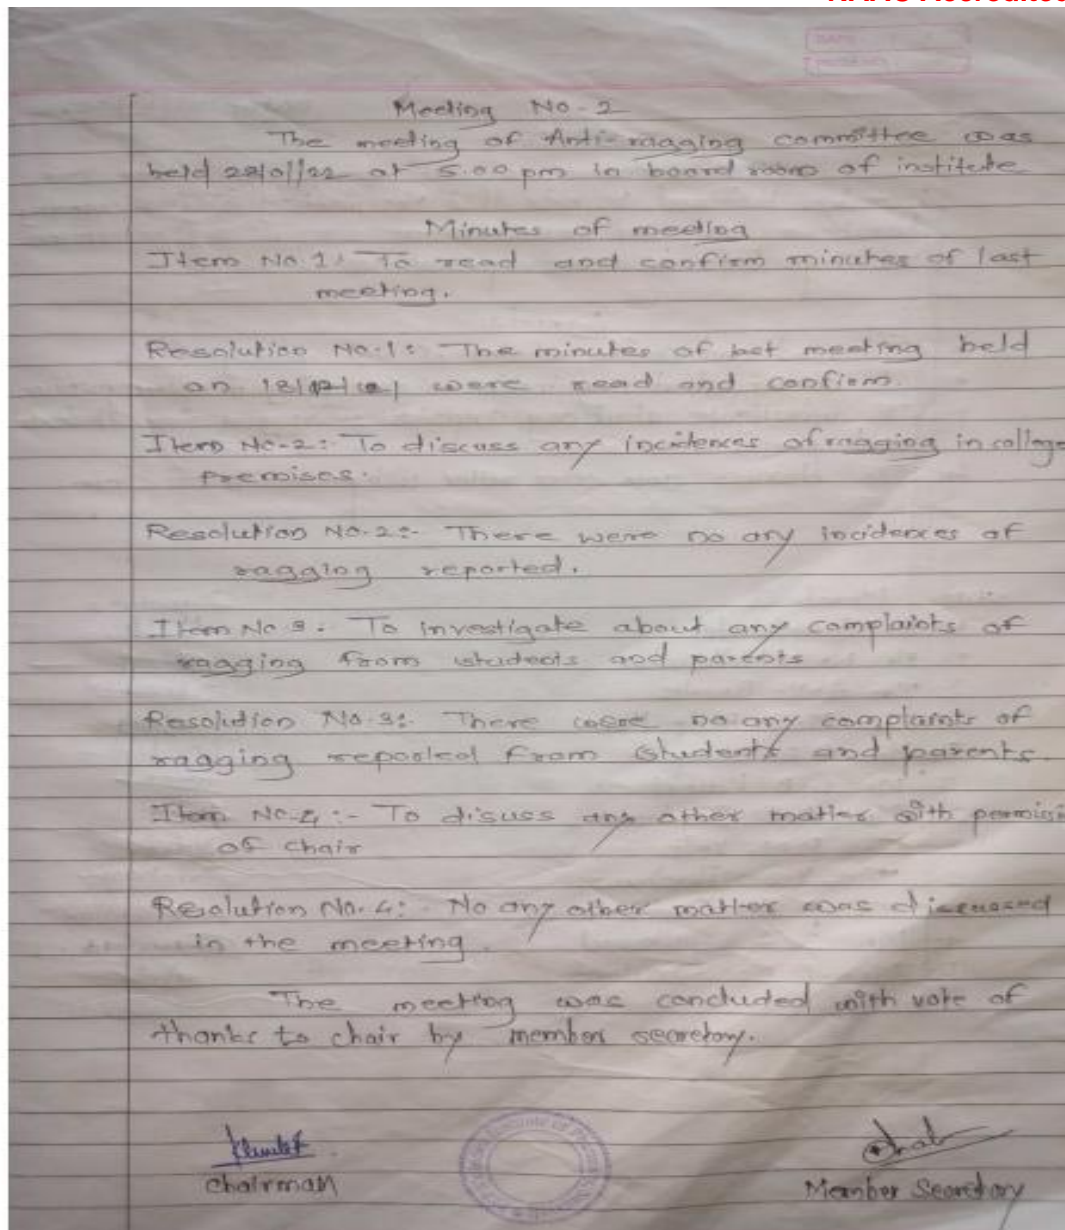 Meeting No-2
The meeting of Anti-ragging committee was
held 28/01/22 at 5.00 pm in board room of institute
Minutes of meeting
Item No 1: To read and confirm minutes of last
meeting.
Resolution No.1: The minutes of last meeting held
on were read and confirm
Item No-2: To discuss any incidences of ragging in college
premises.
Resolution No.2:- There were no any incidences of
ragging reported.
Item No 3. To investigate about any complaints of
ragging from students and parents
Resolution No.3: There were no any complaints of
ragging reported from students and parents.
Item No-4:- To disuss any other matter with
of chair
Resolution No.4:- No any other matter was discussed
in the meeting.
The meeting was concluded with vote of
thanks to chair by member secretory.
Chairman
Member Secretory